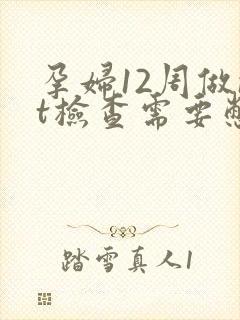 孕婦12周做
t檢查需要憋
踏雪真人1